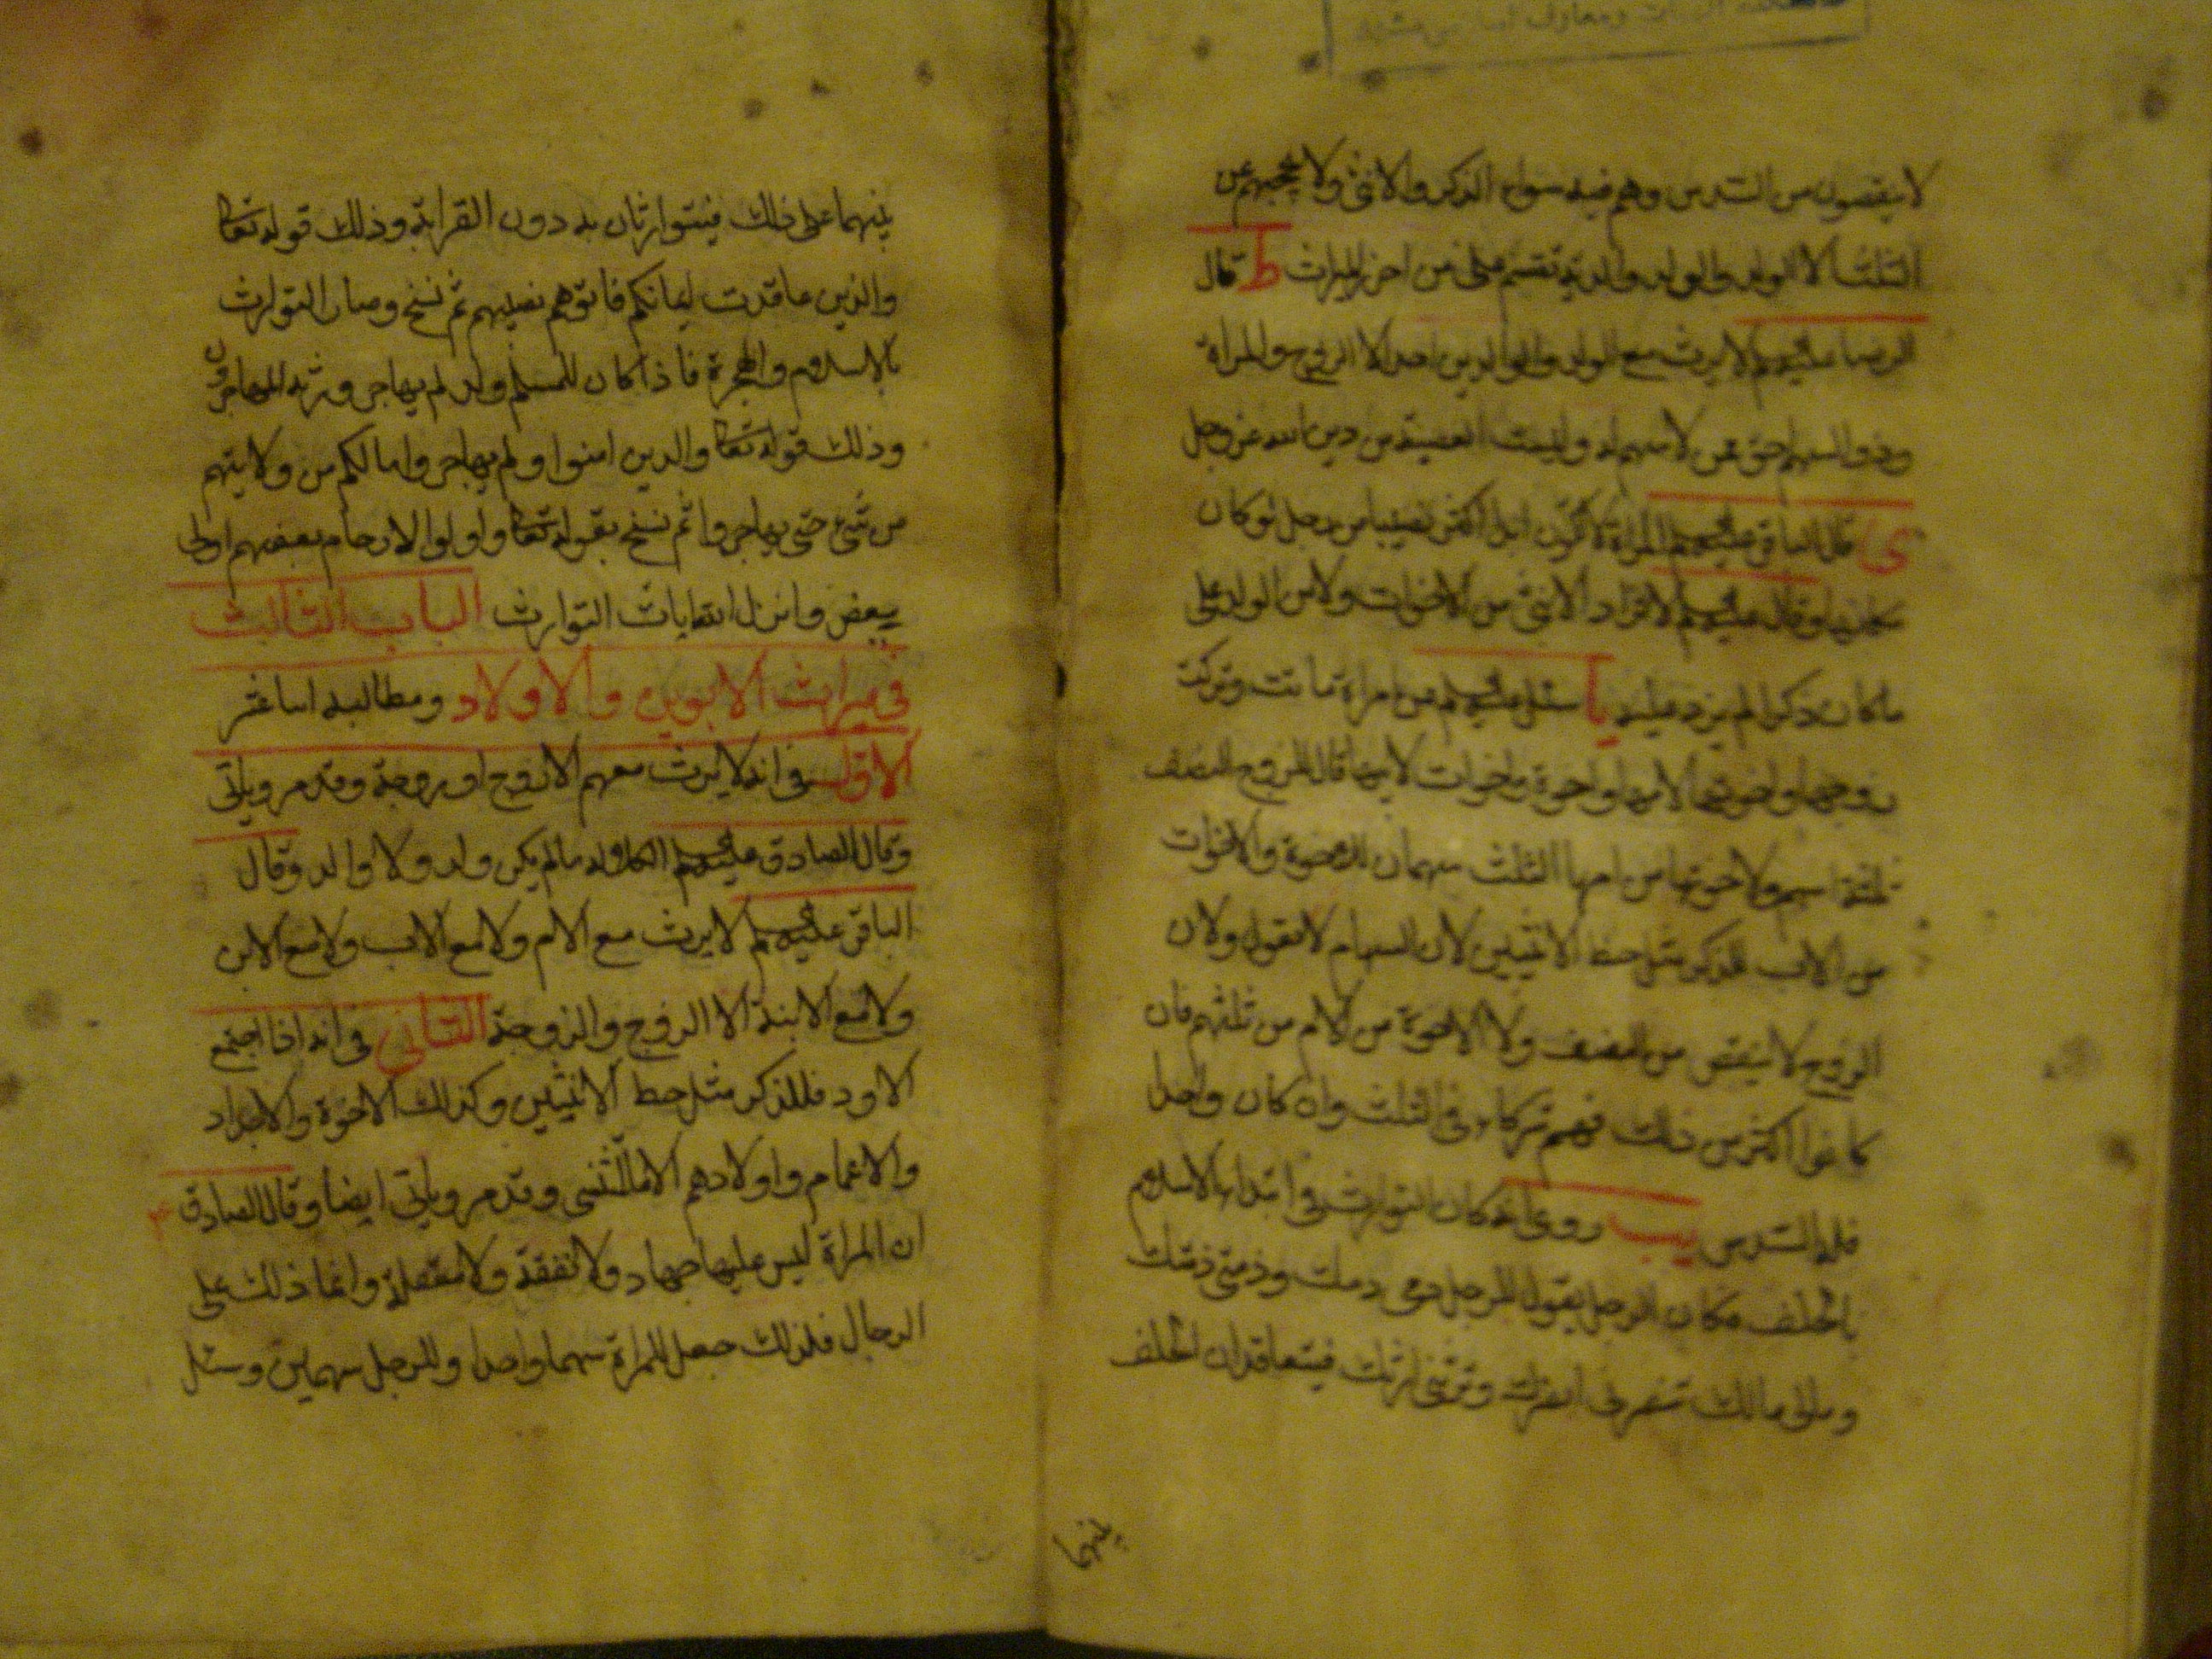 لا ينقصون من السدس وهم فيه سواء الذكر والانثى ولا يحجبهم عن
الثلث الا الولد والولد والدية تقسم على من احرز الميراث ط قال
الرضا عليه السلم لا يرث مع الولد والوالدين احد الا الزوج والمراة
وذو السهم احق ممن لا سهم له وليست العصبة من دين الله عز وجل
ى قال الباقر عليه السلم المراة لا تكون ابدا اكثر نصيبا من رجل لو كان
مكانها وقال عليه السلم لا تزاد الانثى من الاخوات ولا من الولد على
ما كان ذكرا لم يزد عليه يا سئل عليه السلم عن امراة ماتت وتركت
زوجها واخوتها لامها واخوة واخوات لابيها قال للزوج النصف
ثلثة اسهم ولاخوتها من امها الثلث سهمان للاخوة والاخوات
من الاب للذكر مثل حظ الانثيين لان السهام لا تعول ولان
الزوج لا ينقص من النصف ولا الاخوة من الام من ثلثهم فان
كانوا اكثر من ذلك فهم شركاء في الثلث وان كان واحدا
فله السدس يب روى انه كان التوارث في ابتداء الاسلام
بالحلف فكان الرجل يقول للرجل دمى دمك وذمتى ذمتك
ومالى مالك تنصرنى انصرك وترثنى ارثك فيتعاقدان الحلف
بينهما
بينهما على ذلك فيتوارثان به دون القرابة وذلك قوله تعا
والذين عاقدت ايمانكم فاتوهم نصيبهم ثم نسخ وصار التوارث
بالاسلام والهجرة فاذا كان للمسلم ولد لم يهاجر ورثه المهاجرون
وذلك قوله تعا والذين امنوا ولم يهاجروا ما لكم من ولايتهم
من شئ حتى يهاجروا ثم نسخ بقوله تعا واولوا الارحام بعضهم اولى
ببعض وانزل الله ايات التوارث الباب الثالث
في ميراث الابوين والاولاد ومطالبه اثنا عشر
الاول في انه لا يرث معهم الا زوج او زوجة وقد مر وياتى
وقال الصادق عليه السلم الكلالة ما لم يكن ولد ولا والد وقال
الباقر عليه السلم لا يرث مع الام ولا مع الاب ولا مع الابن
ولا مع الابنة الا الزوج والزوجة الثانى في انه اذا اجتمع
الاود فللذكر مثل حظ الانثيين وكذلك الاخوة والاجداد
والاعمام واولادهم الا ما استثنى وقد مر وياتى ايضا وقال الصادق ع
ان المراة ليس عليها جهاد ولا نفقة ولا معقلة وانما ذلك على
الرجال فلذلك جعل للمراة سهما واحدا وللرجل سهمين وسئل